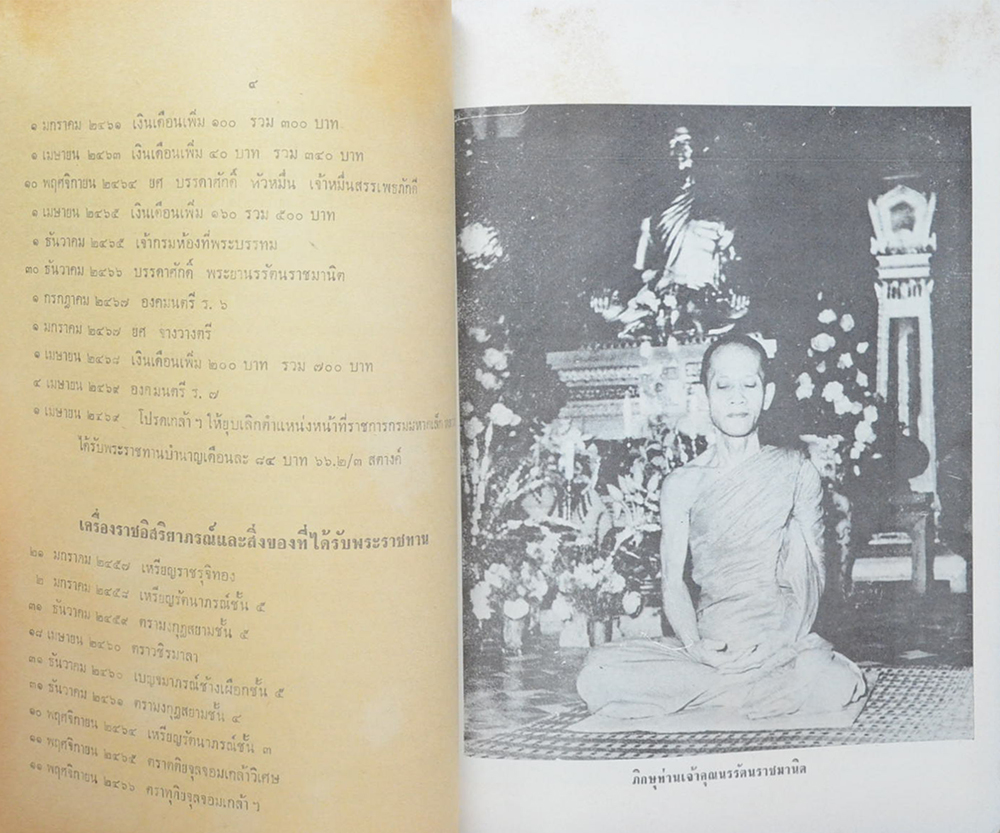 ๔
๑ มกราคม ๒๔๖๑ เงินเดือนเพิ่ม ๑๐๐ รวม ๓๐๐ บาท
๑ เมษายน ๒๔๖๓ เงินเดือนเพิ่ม ๔๐ บาท รวม ๓๔๐ บาท
๑๐ พฤศจิกายน ๒๔๖๔ ยศ บรรดาศักดิ์ หัวหมื่น เจ้าหมื่นสรรเพธภักดี
๑ เมษายน ๒๔๖๕ เงินเดือนเพิ่ม ๑๖๐ รวม ๕๐๐ บาท
๑ ธันวาคม ๒๔๖๕ เจ้ากรมห้องที่พระบรรทม
๓๐ ธันวาคม ๒๔๖๖ บรรดาศักดิ์ พระยานรรัตนราชมานิต
๑ กรกฎาคม ๒๔๖๗ องคมนตรี ร. ๖
๑ มกราคม ๒๔๖๗ ยศ จางวางตรี
๑ เมษายน ๒๔๖๘ เงินเดือนเพิ่ม ๒๐๐ บาท รวม ๗๐๐ บาท
๔ เมษายน ๒๔๖๙ องคมนตรี ร. ๗
๑ เมษายน ๒๔๖๙ โปรดเกล้า ฯ ให้ยุบเลิกตำแหน่งหน้าที่ราชการกรมมหาดเล็ก
ได้รับพระราชทานบำนาญเดือนละ ๘๔ บาท ๖๖.๒/๓ สตางค์
เครื่องราชอิสริยาภรณ์และสิ่งของที่ได้รับพระราชทาน
๒๑ มกราคม ๒๔๕๗ เหรียญราชรุจิทอง
๒ มกราคม ๒๔๕๘ เหรียญรัตนาภรณ์ชั้น ๕
๓๑ ธันวาคม ๒๔๕๙ ตรามงกุฎสยามชั้น ๕
๑๘ เมษายน ๒๔๖๐ ตราวชิรมาลา
๓๑ ธันวาคม ๒๔๖๐ เบญจมาภรณ์ช้างเผือกชั้น ๕
๓๑ ธันวาคม ๒๔๖๑ ตรามงกุฎสยามชั้น ๔
๑๐ พฤศจิกายน ๒๔๖๔ เหรียญรัตนาภรณ์ชั้น ๓
๑๑ พฤศจิกายน ๒๔๖๕ ตราตติยจุลจอมเกล้าวิเศษ
๑๑ พฤศจิกายน ๒๔๖๖ ตราทุติยจุลจอมเกล้า ฯ
ภิกษุท่านเจ้าคุณนรรัตนราชมานิต